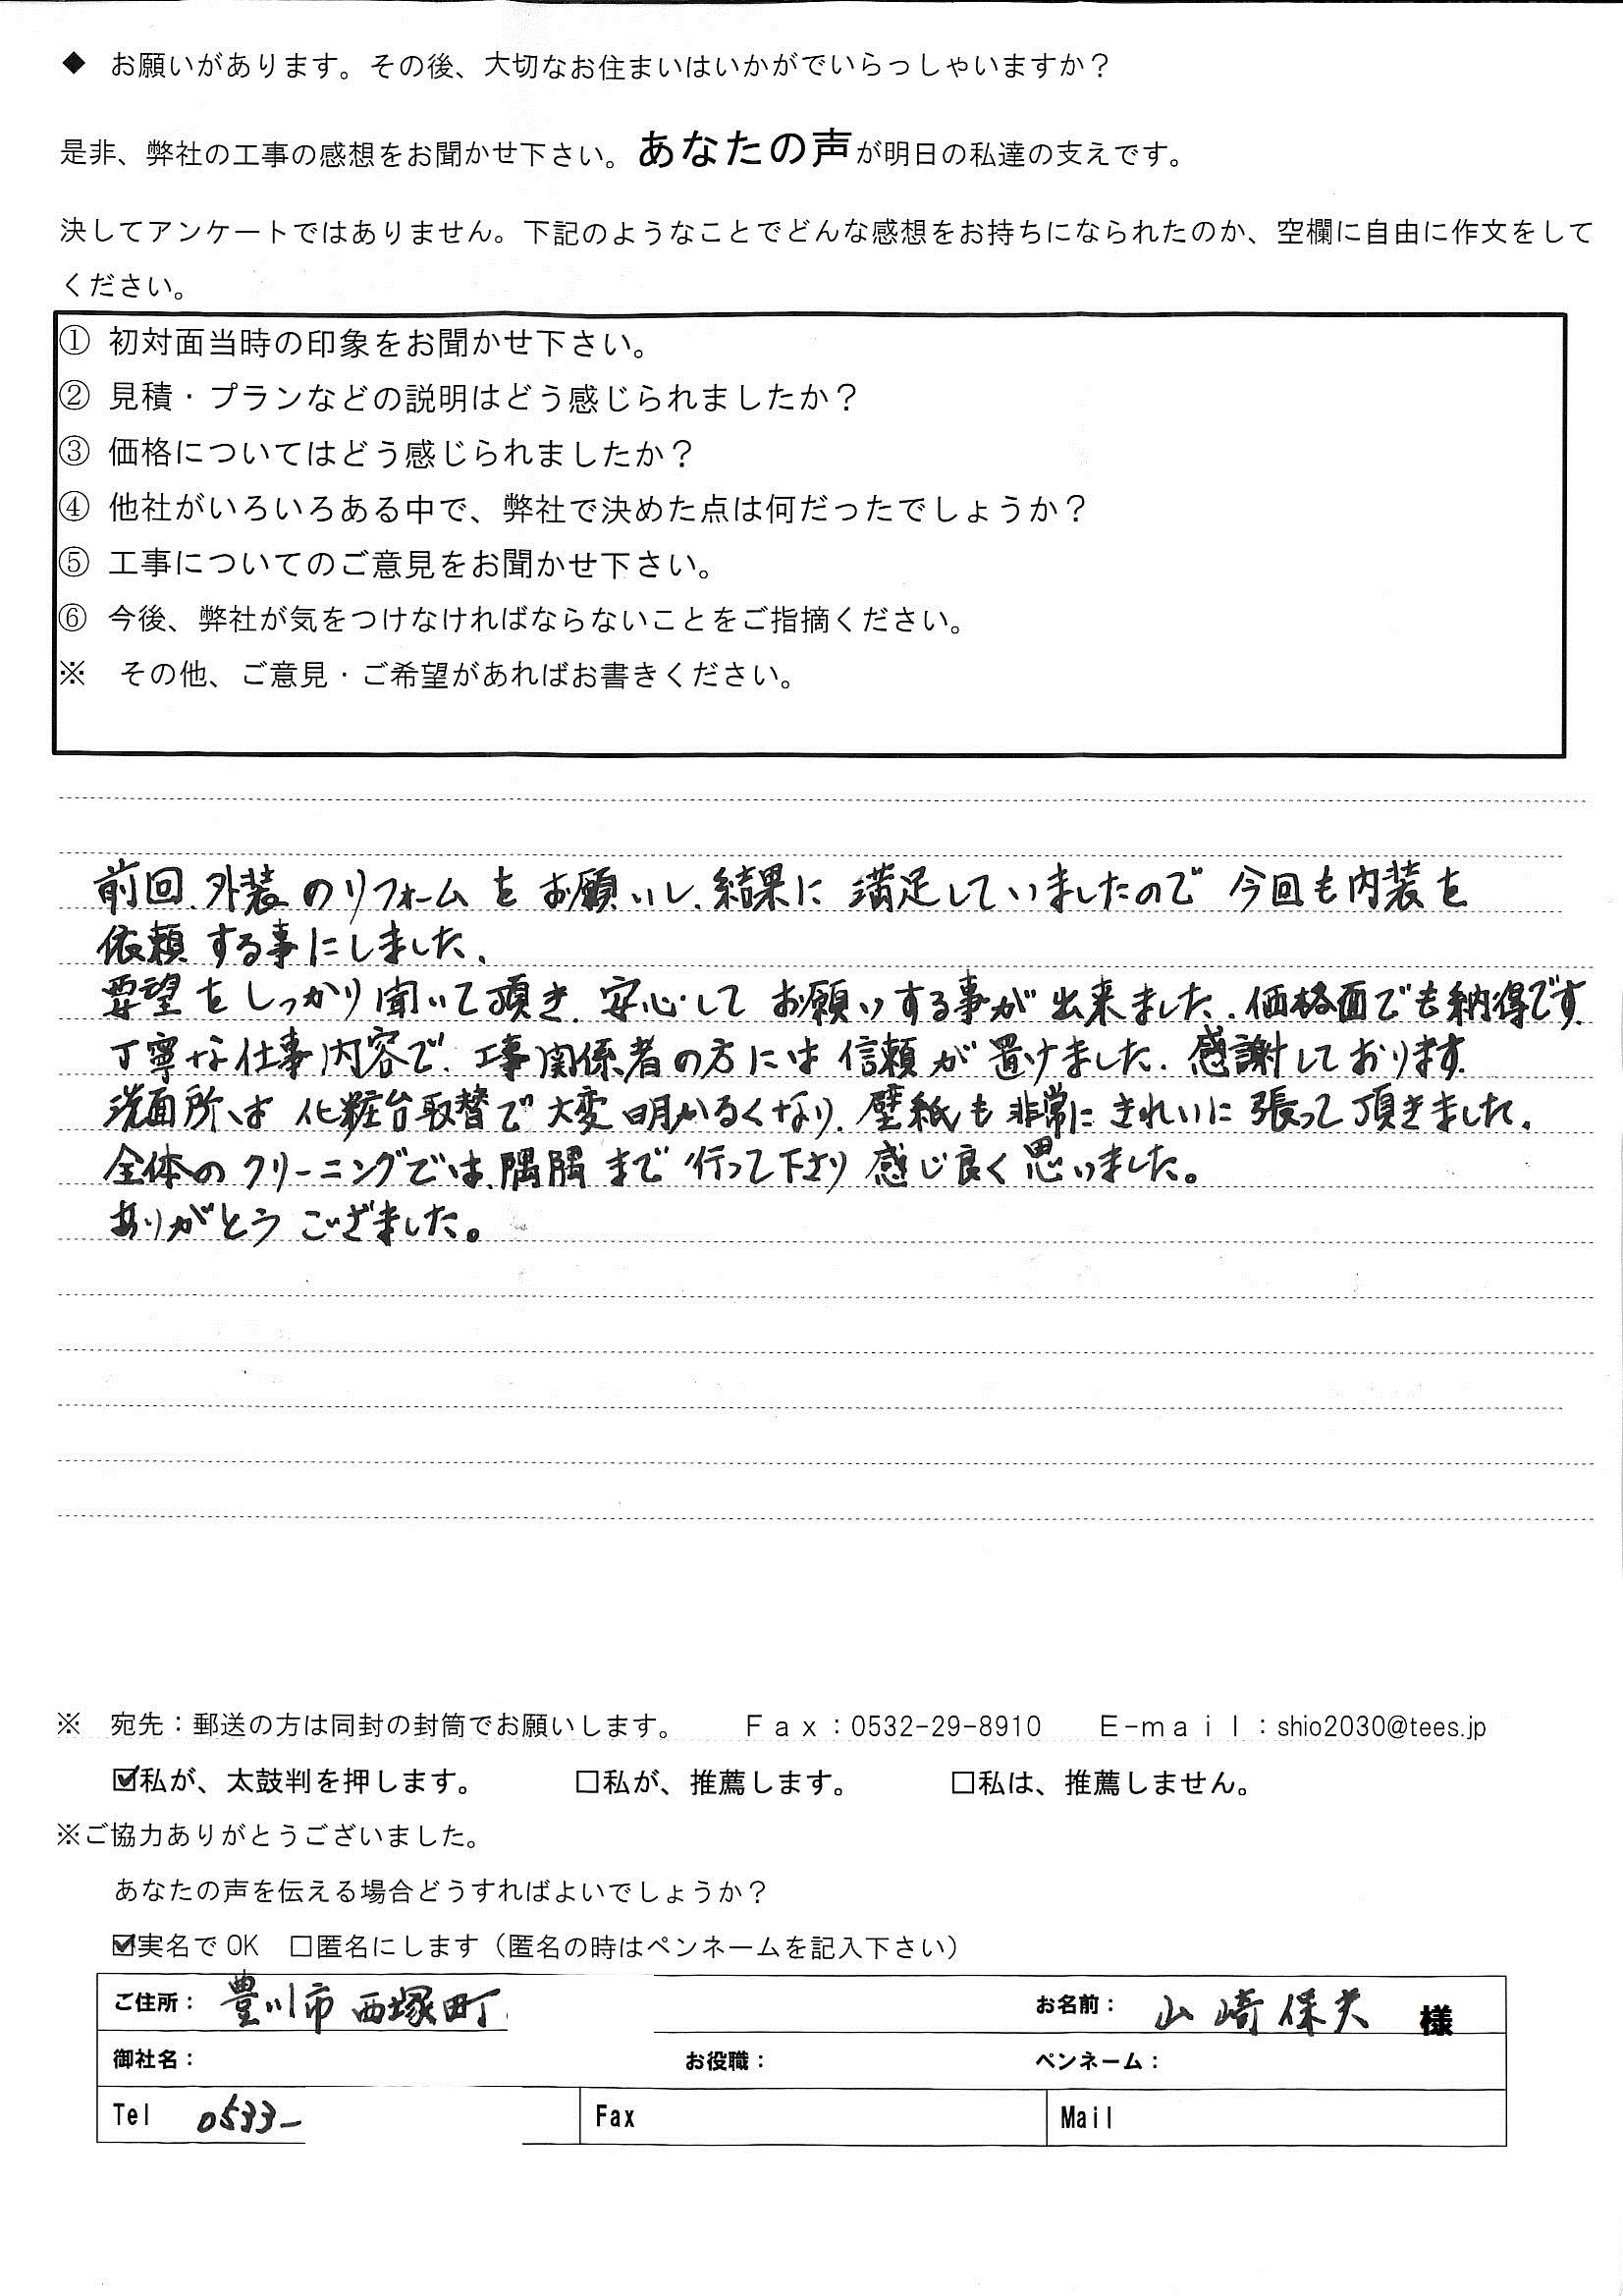 ◆ お願いがあります。その後、大切なお住まいはいかがでいらっしゃいますか？
是非、弊社の工事の感想をお聞かせ下さい。あなたの声が明日の私達の支えです。
決してアンケートではありません。下記のようなことでどんな感想をお持ちになられたのか、空欄に自由に作文をして
ください。
① 初対面当時の印象をお聞かせ下さい。
② 見積・プランなどの説明はどう感じられましたか？
③ 価格についてはどう感じられましたか？
④ 他社がいろいろある中で、弊社で決めた点は何だったでしょうか？
⑤ 工事についてのご意見をお聞かせ下さい。
⑥ 今後、弊社が気をつけなければならないことをご指摘ください。
※ その他、ご意見・ご希望があればお書きください。
前回、外装のリフォームをお願いし、結果に満足していましたので今回も内装を
依頼する事にしました、
要望をしっかり聞いて頂き、安心してお願いする事が出来ました、価格面でも納得です、
丁寧な仕事内容で、工事関係者の方には信頼が置けました、感謝しております、
洗面所は化粧台取替で大変明かるくなり、壁紙も非常にきれいに張って頂きました、
全体のクリーニングでは、隅隅まで行って下さり感じ良く思いました。
ありがとうございました。
※ 宛先：郵送の方は同封の封筒でお願いします。 Ｆａｘ：0532-29-8910 Ｅ-ｍａｉｌ：shio2030@tees.jp
☑私が、太鼓判を押します。 □私が、推薦します。 □私は、推薦しません。
※ご協力ありがとうございました。
あなたの声を伝える場合どうすればよいでしょうか？
☑実名でOK □匿名にします（匿名の時はペンネームを記入下さい）
ご住所： 豊川市西塚町 お名前： 山崎保夫 様
御社名： お役職： ペンネーム：
Tel 0533- Fax Mail